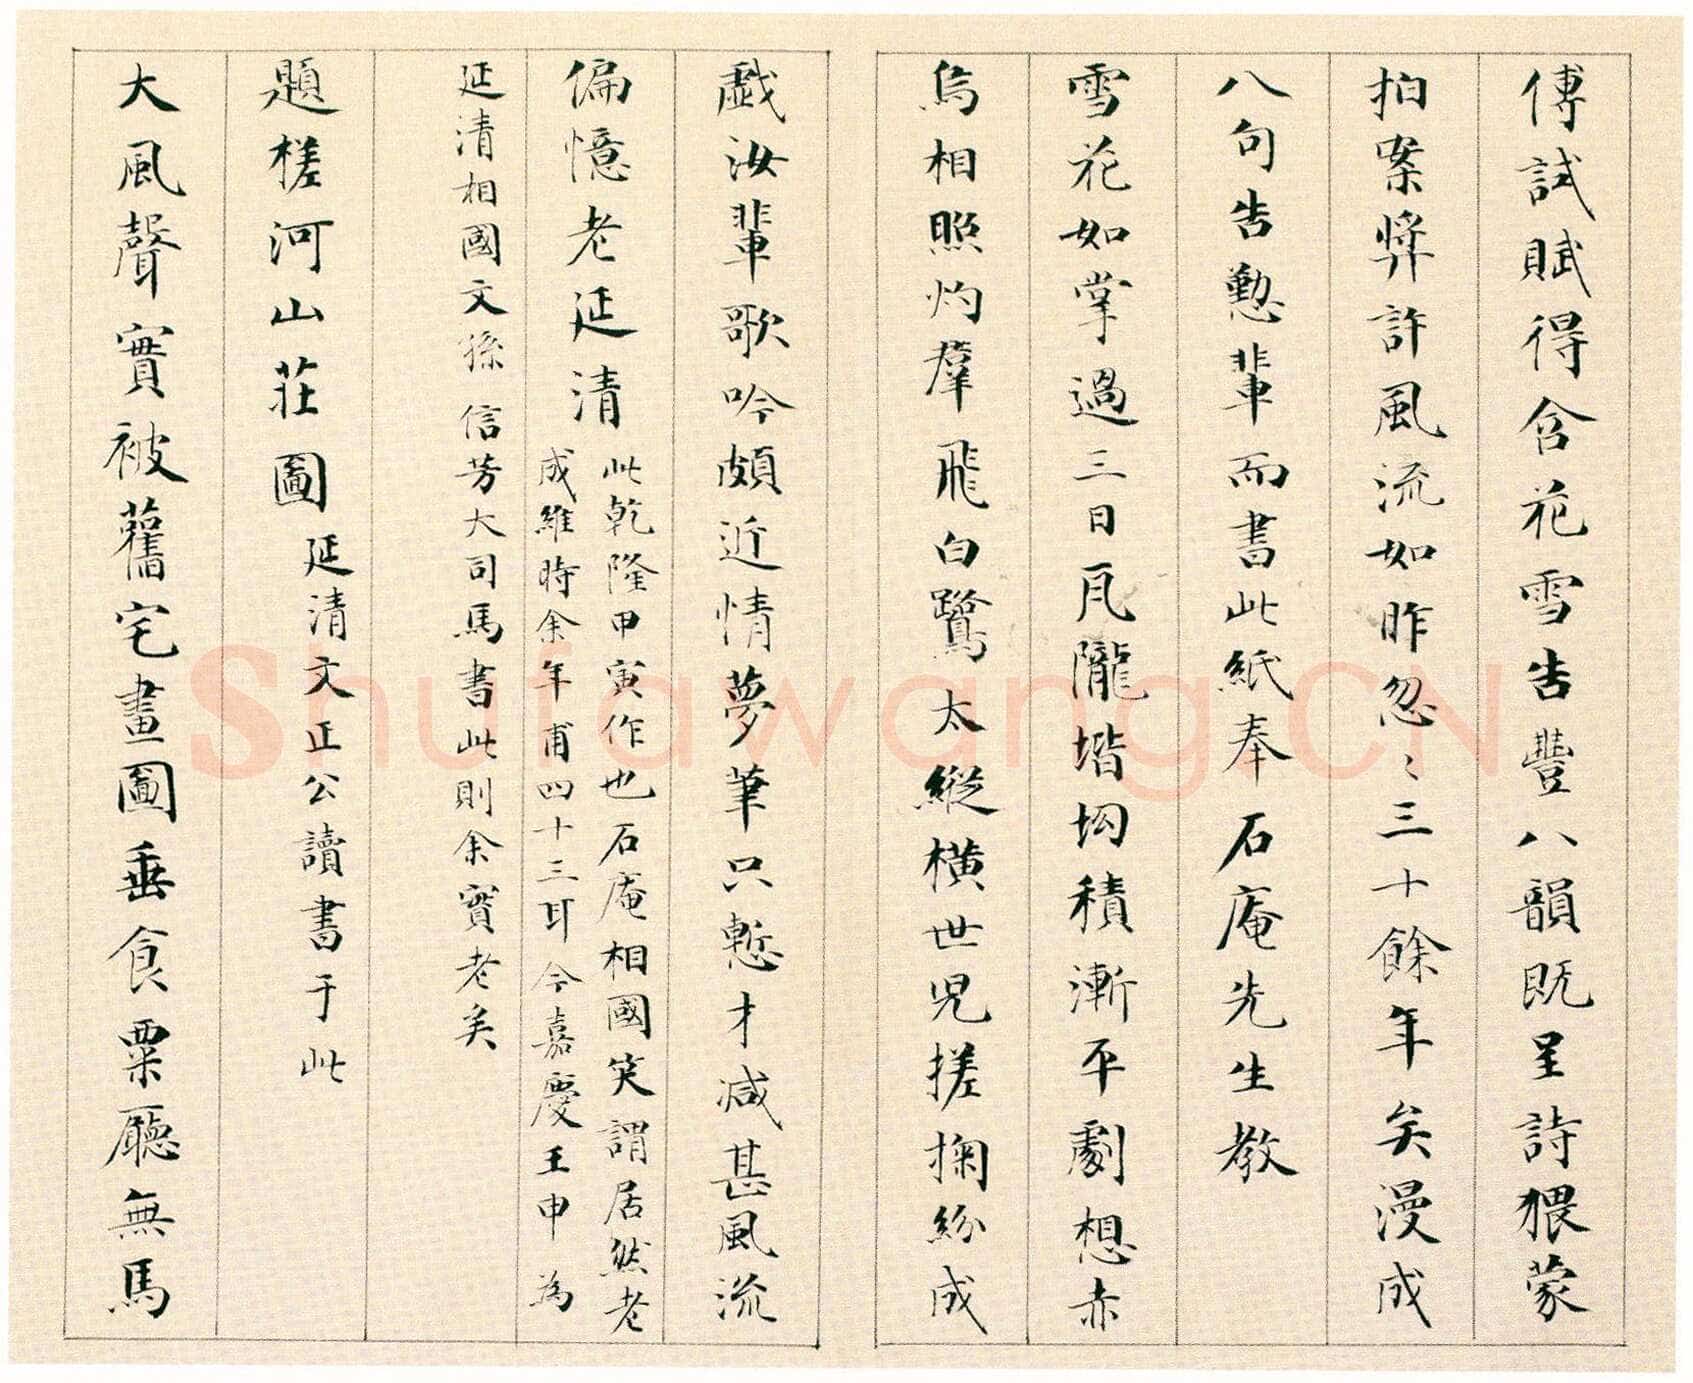 傅試賦得含花雪告豐八韻既呈詩猥蒙
拍案獎許風流如昨忽〻三十餘年矣漫成
八句告懃輩而書此紙奉石庵先生教
雪花如掌過三日瓦隴堦坳積漸平劇想赤
烏相照灼羣飛白鷺太縱橫世兒搓掬紛成
戲汝輩歌吟頗近情夢筆只慙才減甚風流
偏憶老延清
此乾隆甲寅作也石庵相國笑謂居然老
成維時余年甫四十三耳今嘉慶壬申為
延清相國文孫信芳大司馬書此則余實老矣
題槎河山莊圖
延清文正公讀書于此
大風聲實被舊宅畫圖垂食粟廳無馬
Shufawang.CN